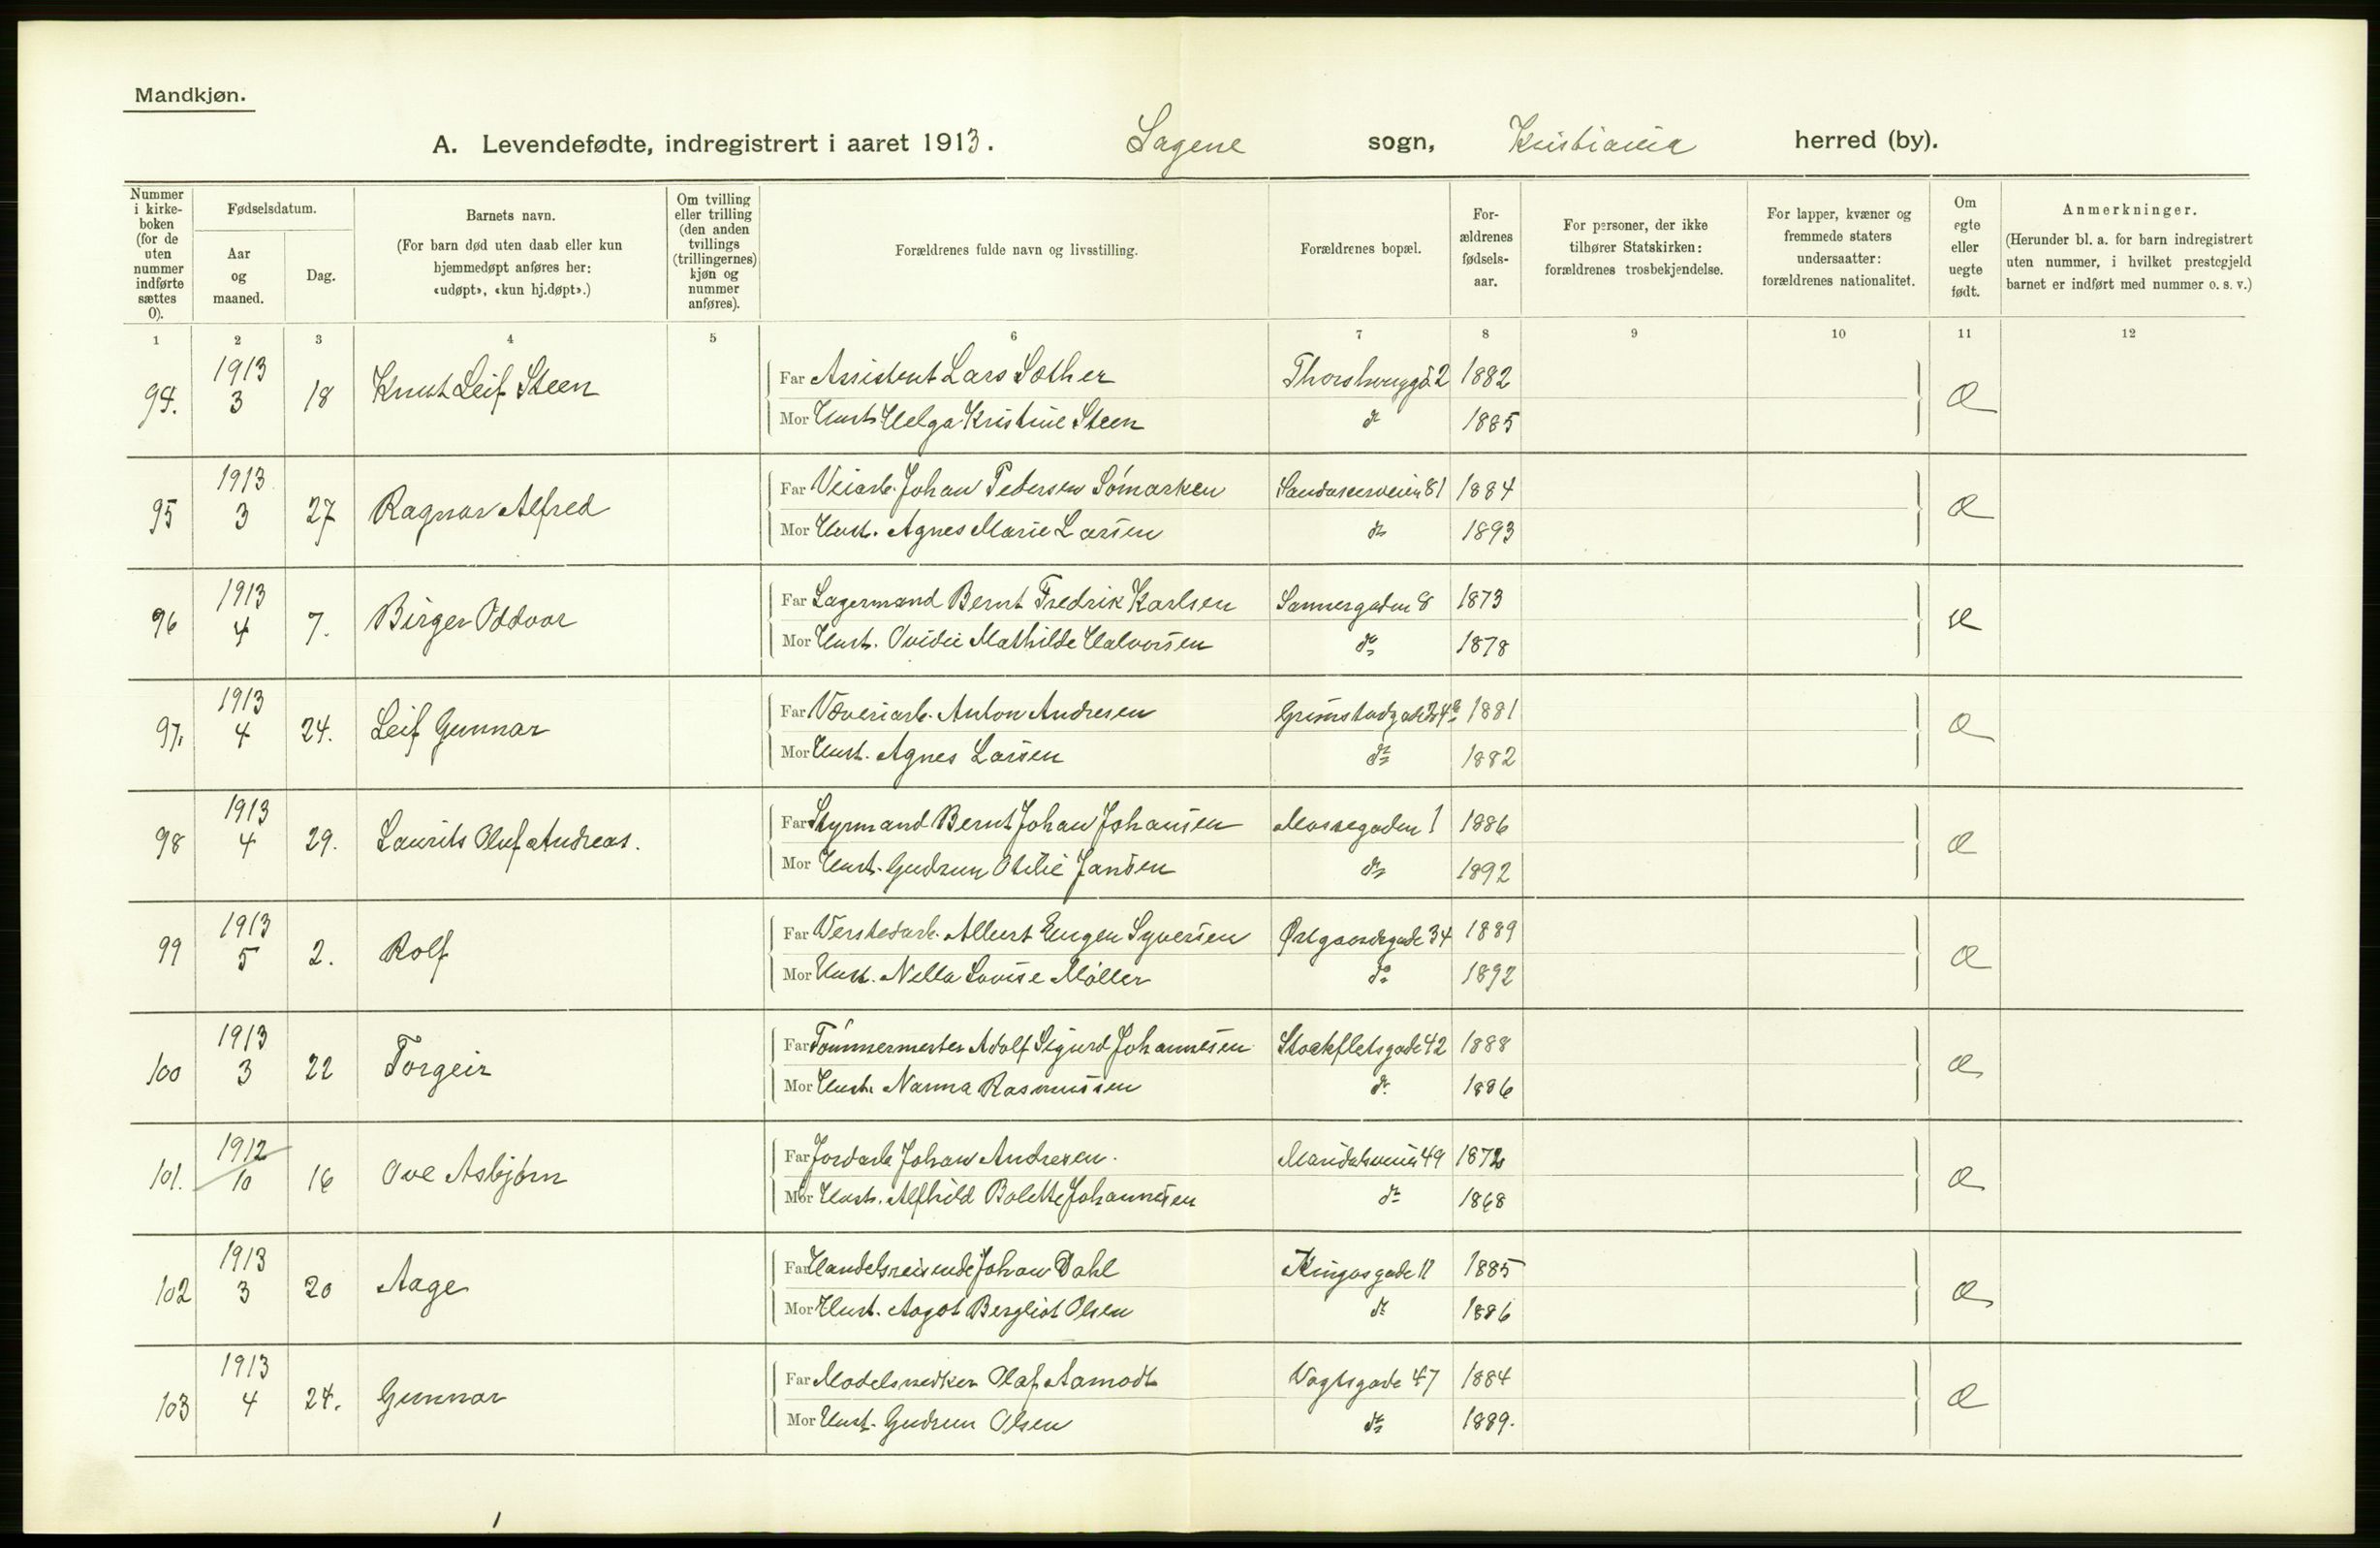 Mandkjøn.
A. Levendefødte, indregistrert i aaret 1913. Sagene sogn, Kristiania herred (by).
Nummer i kirke-boken (for de uten nummer indførte sættes 0).
Fødselsdatum.
Aar og maaned.
Dag.
Barnets navn.
(For barn død uten daab eller kun hjemmedøpt anføres her: «udøpt», «kun hj.døpt».)
Om tvilling eller trilling (den anden tvillings (trillingernes) kjøn og nummer anføres).
Forældrenes fulde navn og livsstilling.
Forældrenes bopæl.
For-ældrenes fødsels-aar.
For personer, der ikke tilhører Statskirken: forældrenes trosbekjendelse.
For lapper, kvæner og fremmede staters undersaatter: forældrenes nationalitet.
Om egte eller uegte født.
Anmerkninger.
(Herunder bl. a. for barn indregistrert uten nummer, i hvilket prestegjeld barnet er indført med nummer o. s. v.)
1 2 3 4 5 6 7 8 9 10 11 12
94. 1913 3 18 Knut Leif Steen Far Assistent Lars Sæther 2 1882 Æ
Mor Hust. Helga Kristine Steen do 1885
95 1913 3 27 Ragnar Alfred Far Veiarb. Johan Pedersen Sømarken Sandakerveien 81 1884 Æ
Mor Hust. Agnes Marie Larsen do 1893
96 1913 4 7. Birger Oddvar Far Lagermand Bernt Fredrik Karlsen Sannergaden 8 1873 Æ
Mor Hust. Ovidie Mathilde Halvorsen do 1878
97. 1913 4 24. Leif Gunnar Far Væveriarb. Anton Andresen 1881 Æ
Mor Hust. Agnes Larsen do 1882
98 1913 4 29. Laurits Oluf Andreas. Far Styrmand Bernt Johan Johansen Mossegaden 1 1886 Æ
Mor Hust. Gudrun Otilie Jansen do 1892
99 1913 5 2. Rolf Far Verkstedarb. Albert Eugen Syversen 34 1889 Æ
Mor Hust. Nella Lovise Møller do 1892
100 1913 3 22 Torgeir Far Tømmermester Adolf Sigurd Johannesen Stockfletsgade 42 1888 Æ
Mor Hust. Nanna Rasmussen do 1886
101. 1912 10 16 Ove Asbjørn Far Jordarb. Johan Andresen. Maridalsveien 49 1872 Æ
Mor Hust. Alfhild Bolette Johannesen do 1868
102 1913 3 20 Aage Far Handelsreisende Johan Dahl Kingosgade 11 1885 Æ
Mor Hust. Aagot Bergliot Olsen do 1886
103 1913 4 24. Gunnar Far Modelsnedker Olaf Aamodt Vogtsgade 47 1884 Æ
Mor Hust. Gudrun Olsen do 1889.